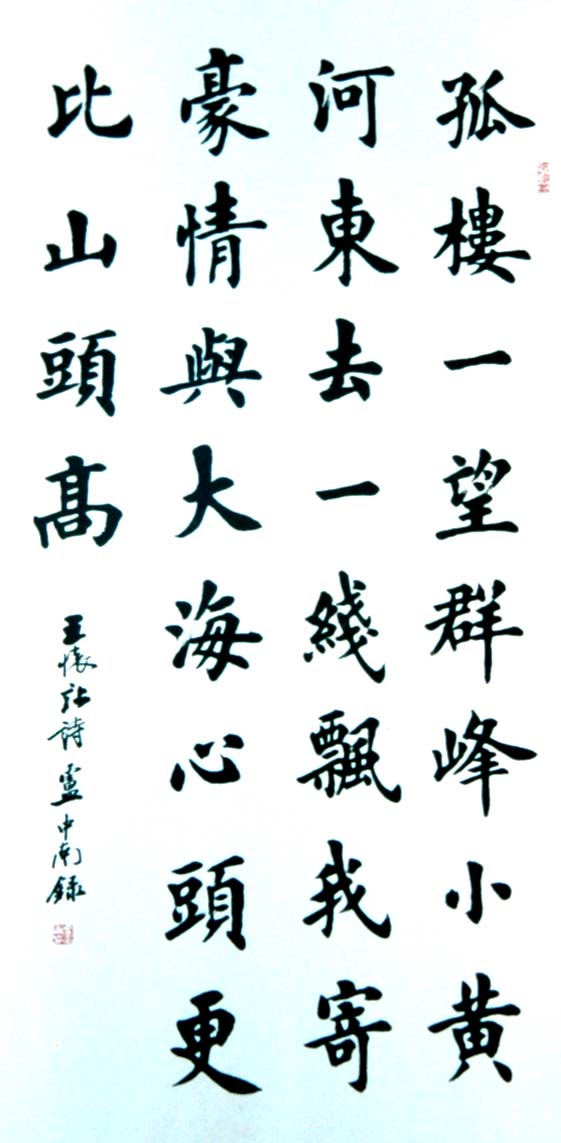 孤樓一望群峰小黃
河東去一綫飄我寄
豪情與大海心頭更
比山頭高
王懷讓詩 盧中南錄